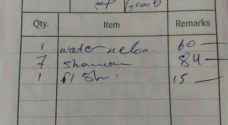 Qty. Item Remarks
1 water melon 60
7 84
1 fish 15